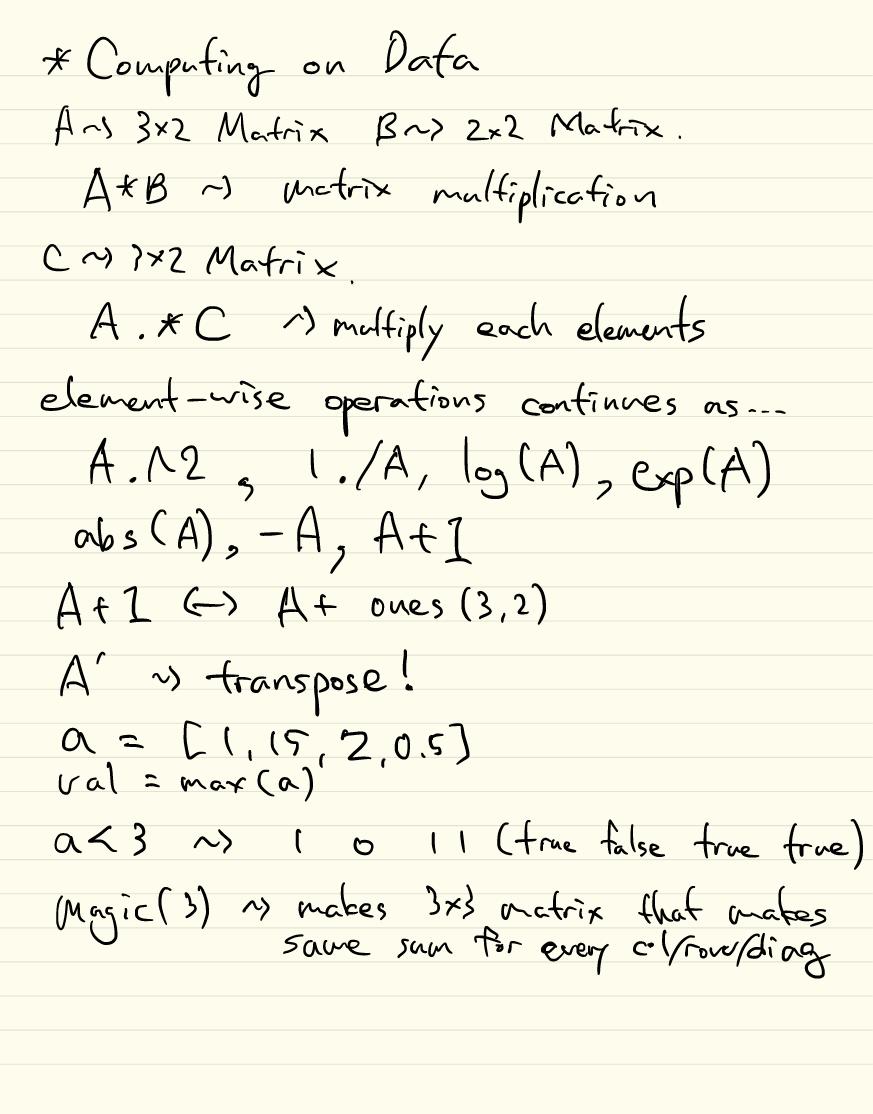 * Computing on Data
A ~> 3×2 Matrix B ~> 2×2 Matrix.
A*B ~> matrix multiplication
C ~> 3×2 Matrix.
A .* C ~> multiply each elements
element-wise operations continues as...
A.^2, 1./A, log(A), exp(A)
abs(A), -A, A+1
A+1 <-> A+ ones(3,2)
A' ~> transpose!
a = [1, 15, 2, 0.5]
val = max(a)
a<3 ~> 1 0 1 1 (true false true true)
Magic(3) ~> makes 3x3 matrix that makes
same sum for every col/row/diag